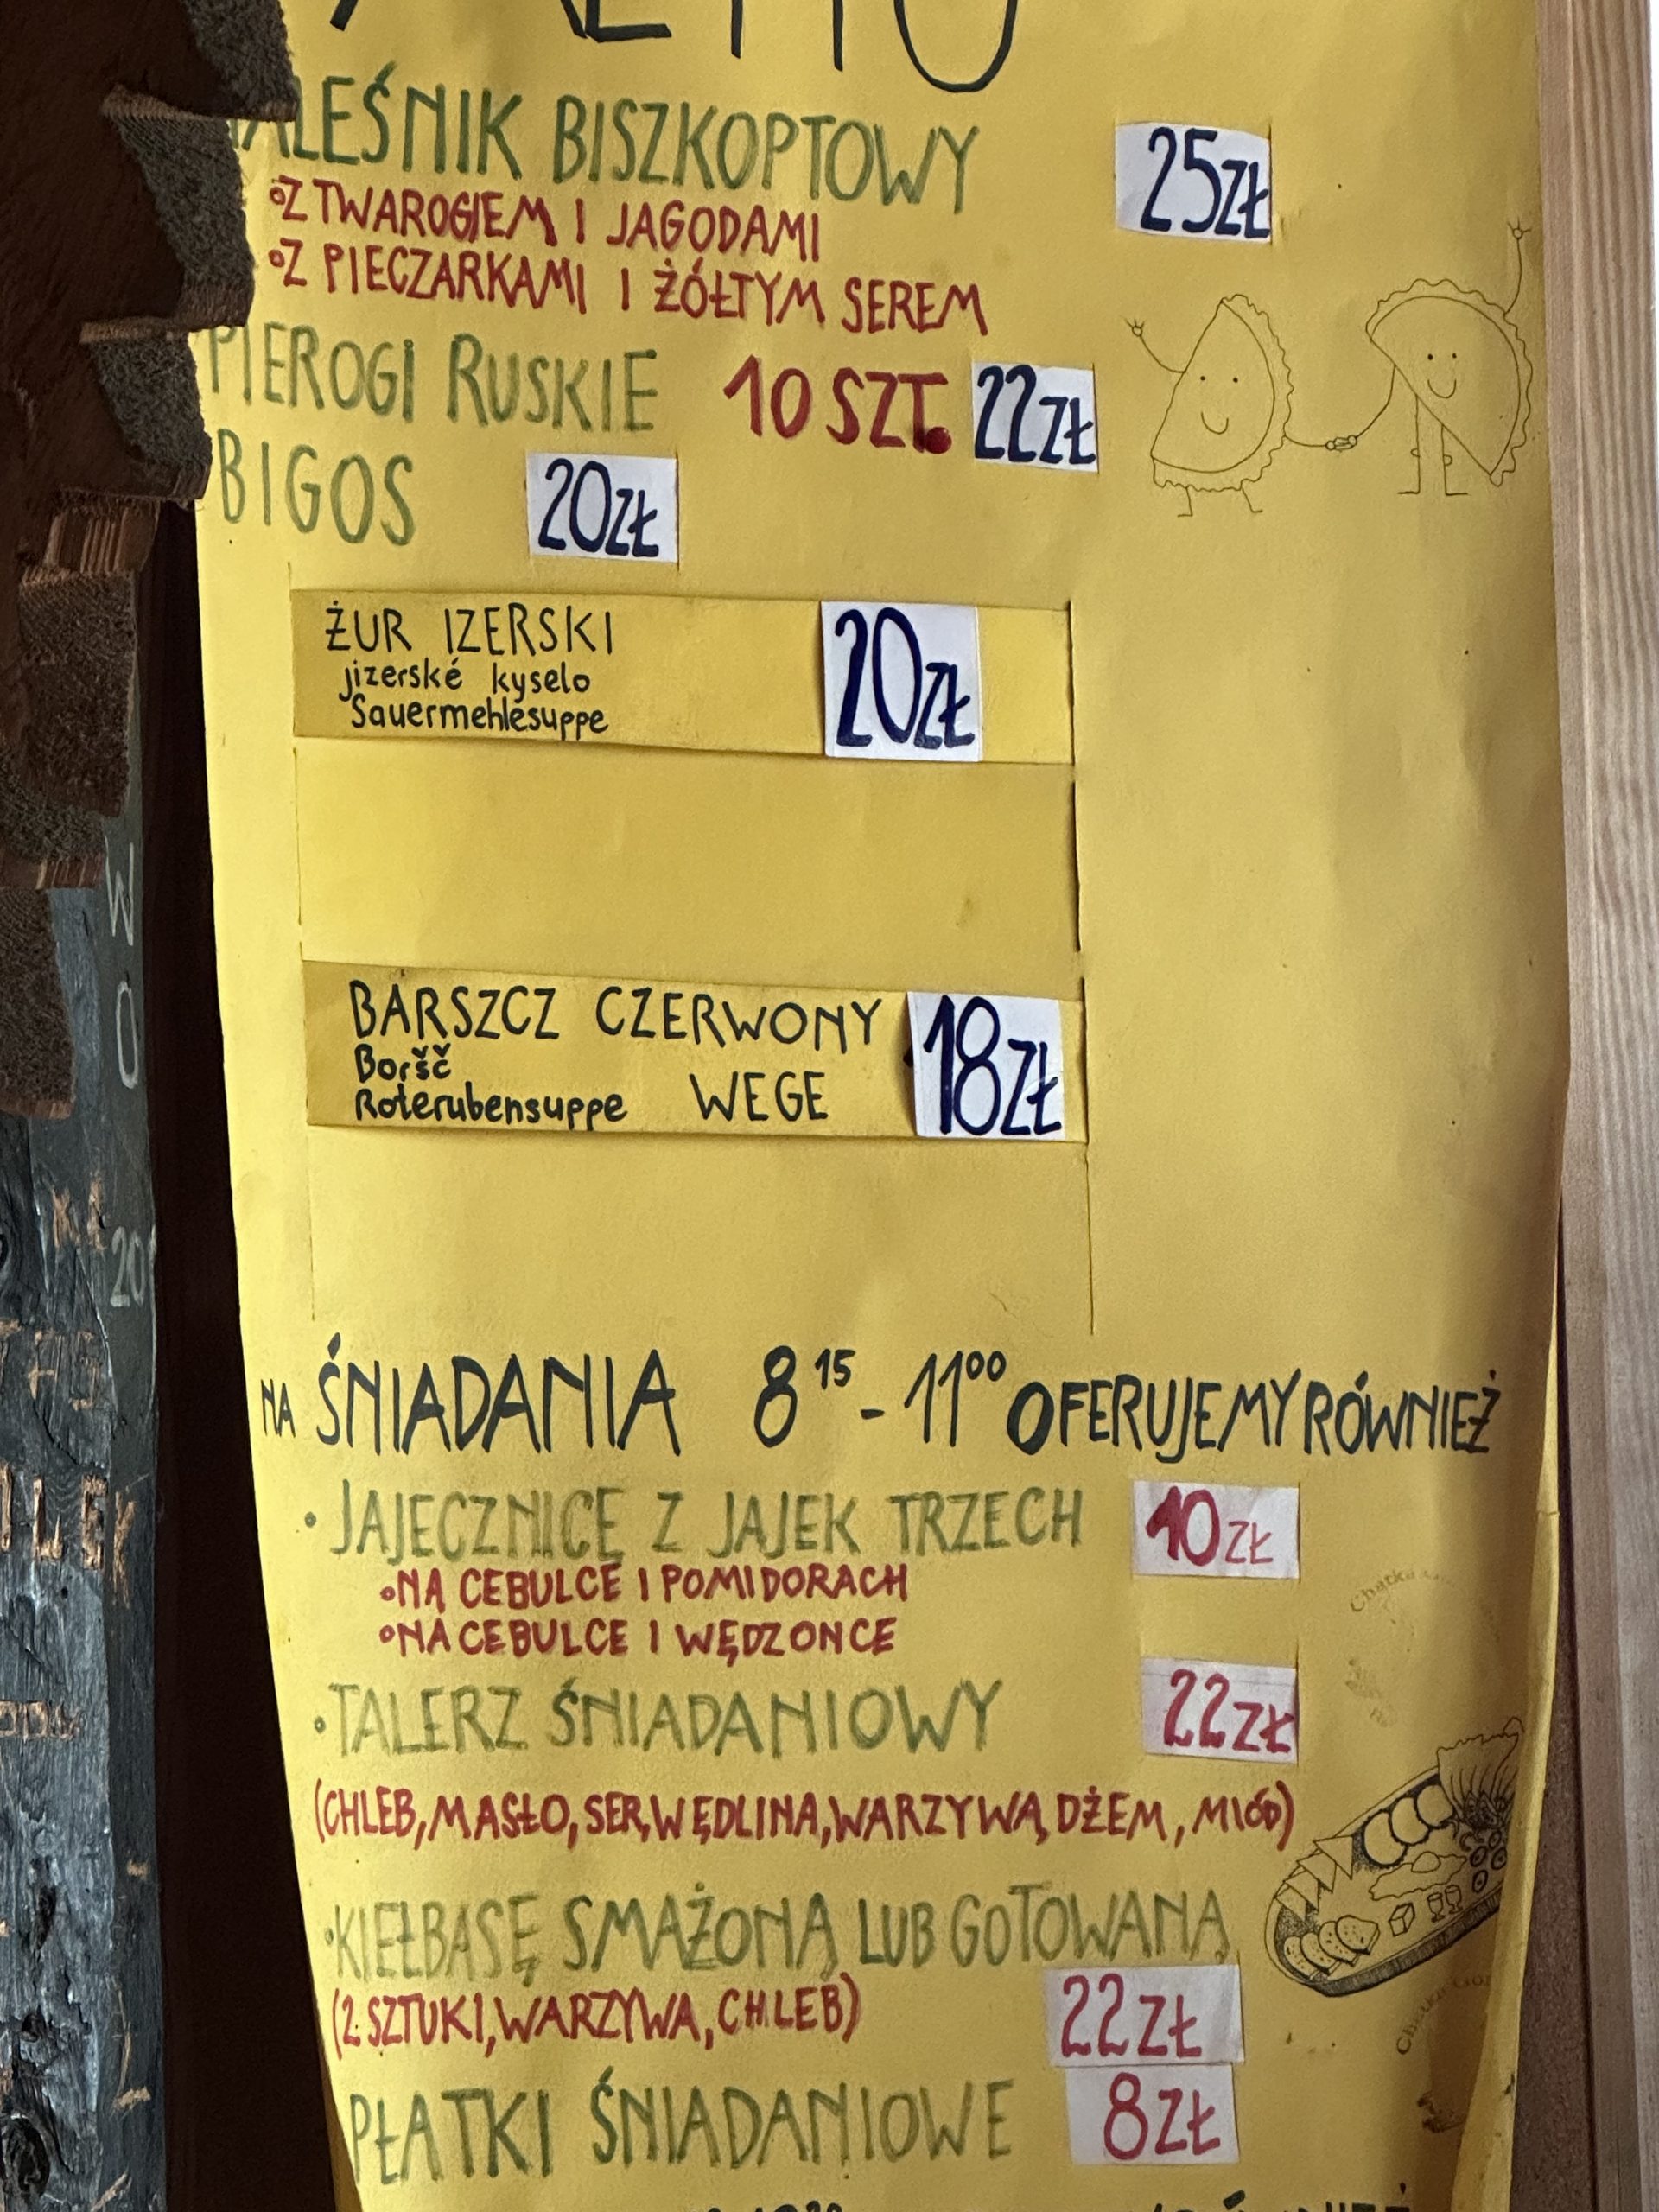 NALEŚNIK BISZKOPTOWY 25ZŁ
°Z TWAROGIEM I JAGODAMI
°Z PIECZARKAMI I ŻÓŁTYM SEREM
PIEROGI RUSKIE 10 SZT. 22ZŁ
BIGOS 20ZŁ
ŻUR IZERSKI 20ZŁ
jizerské kyselo
Sauermehlesuppe
BARSZCZ CZERWONY 18ZŁ
Boršč
Roterubensuppe WEGE
NA ŚNIADANIA 8¹⁵-11⁰⁰ OFERUJEMY RÓWNIEŻ
• JAJECZNICĘ Z JAJEK TRZECH 10ZŁ
°NA CEBULCE I POMIDORACH
°NA CEBULCE I WĘDZONCE
• TALERZ ŚNIADANIOWY 22ZŁ
(CHLEB, MASŁO, SER, WĘDLINA, WARZYWA, DŻEM, MIÓD)
• KIEŁBASĘ SMAŻONĄ LUB GOTOWANĄ
(2 SZTUKI, WARZYWA, CHLEB) 22ZŁ
PŁATKI ŚNIADANIOWE 8ZŁ